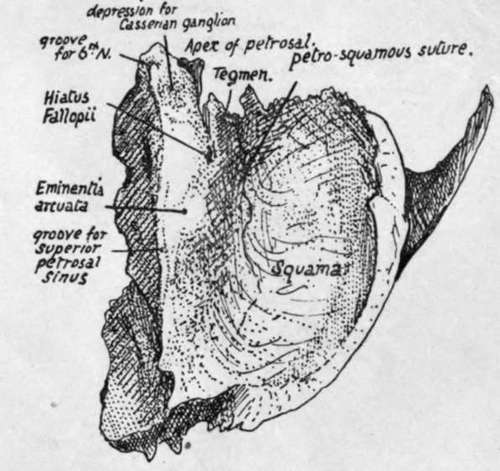 depression for
Casserian ganglion
groove
for 6th N.
Apex of petrosal.
petro-squamous suture.
Tegmen.
Hiatus
Fallopii
Eminentia
arcuata
groove for
superior
petrosal
sinus
Squama